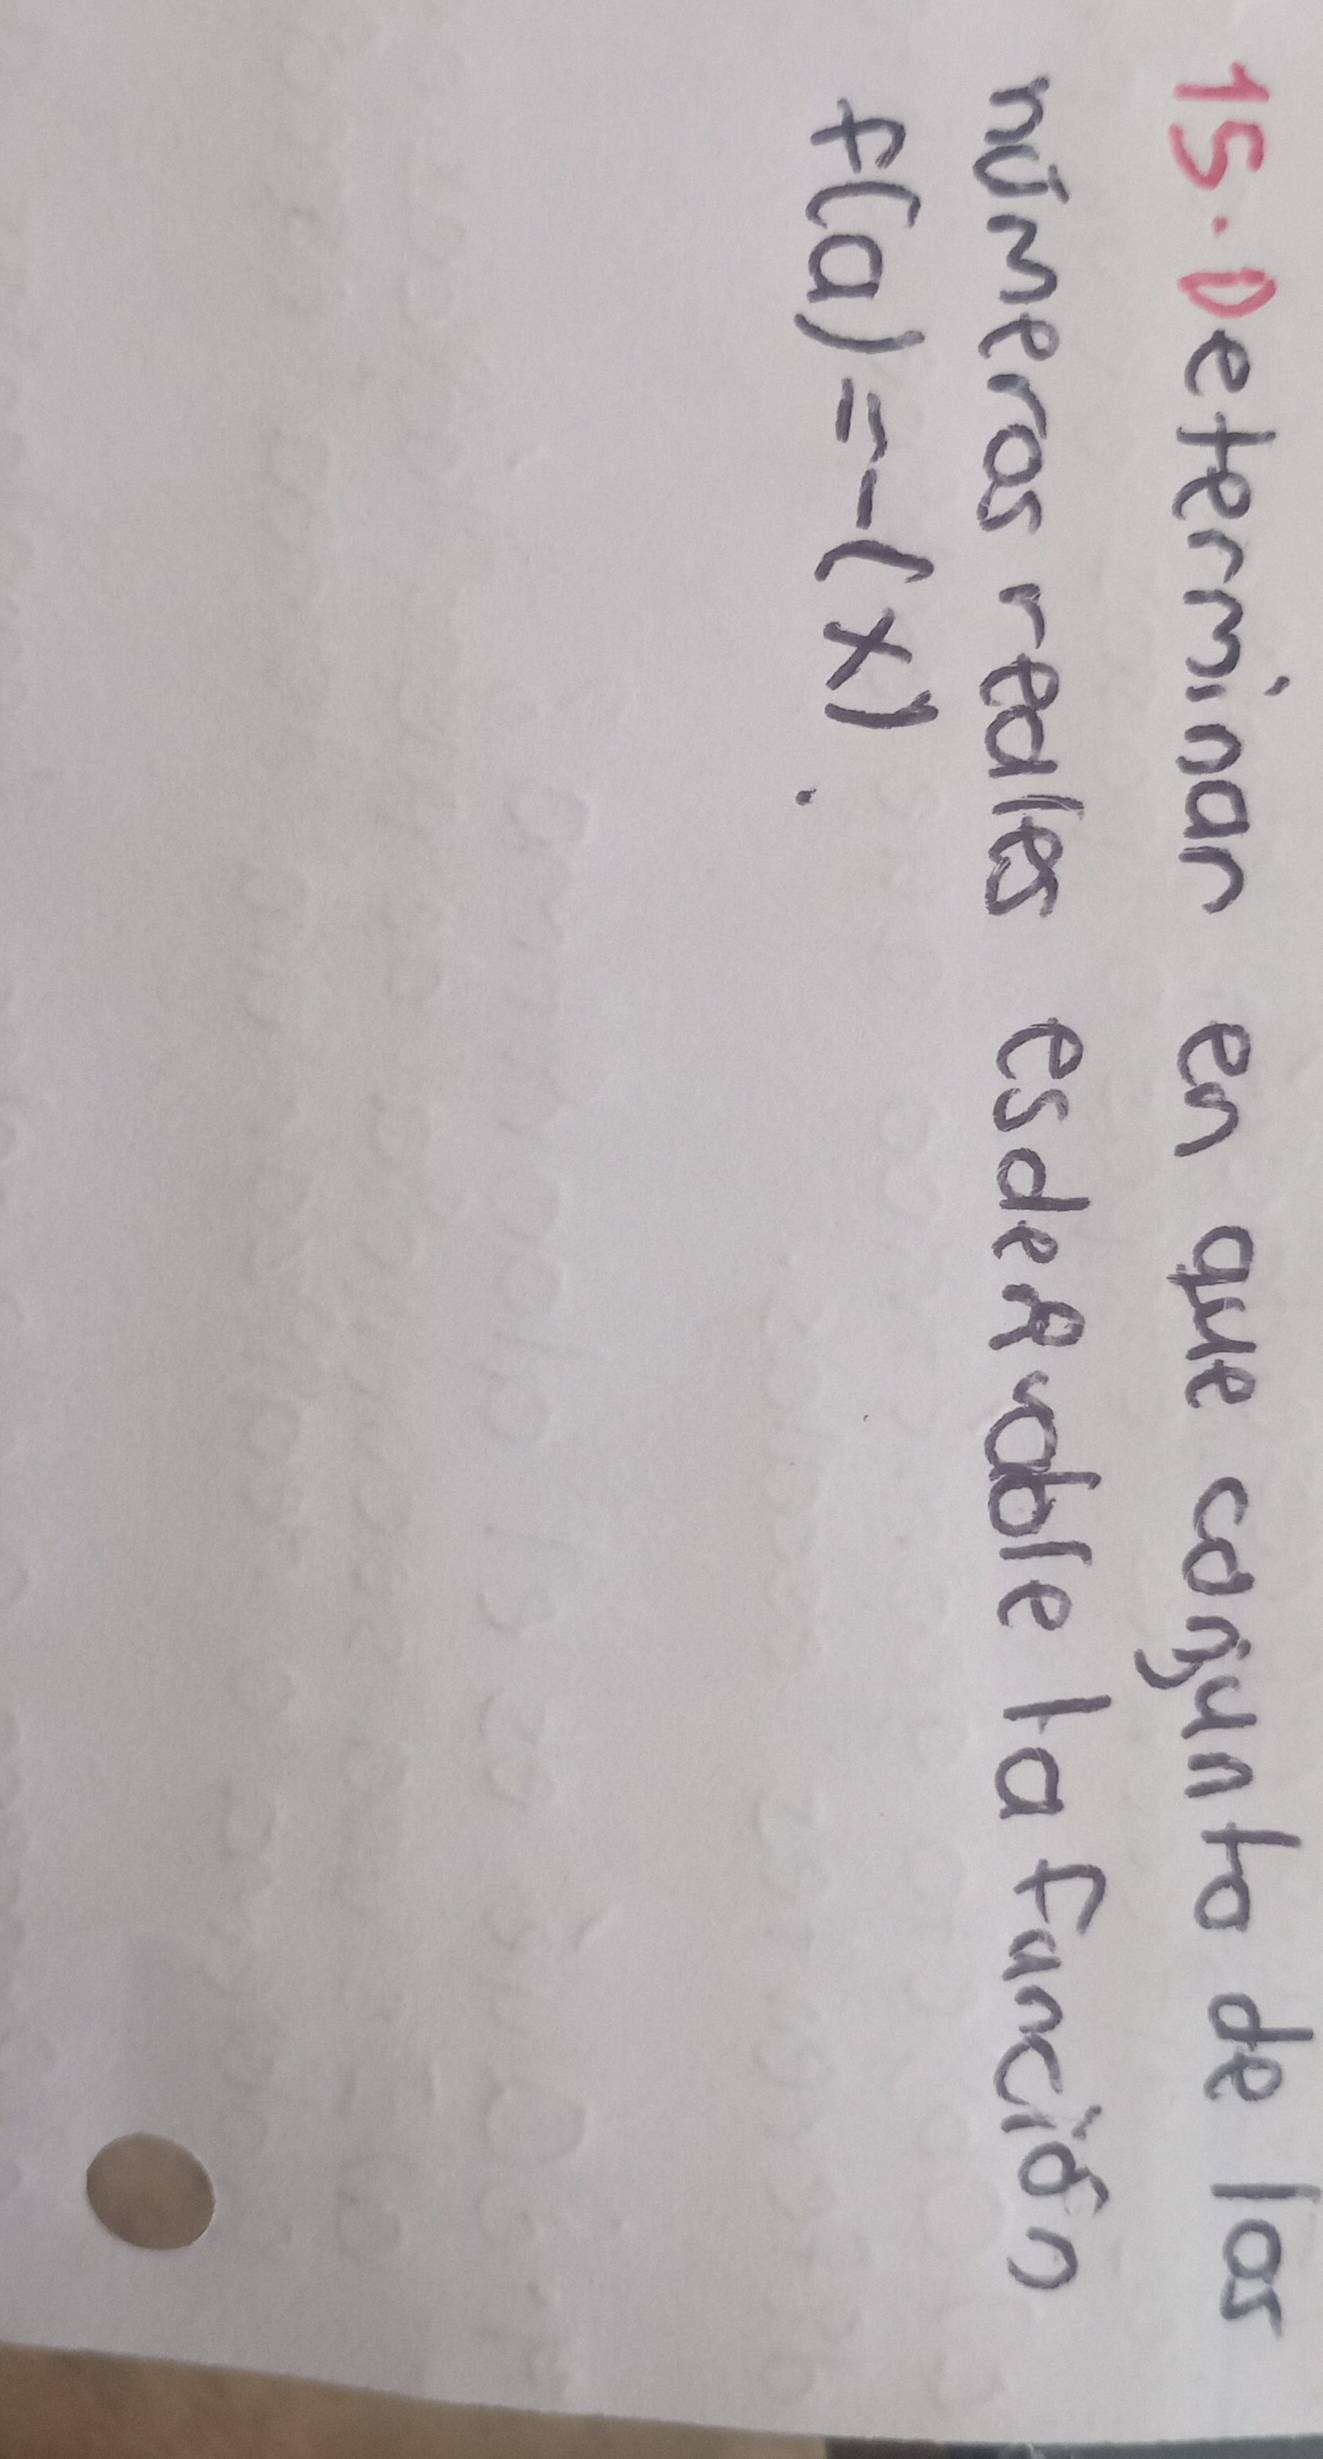 15. Determinar en que conjunto de los
números reales es deRivable la función
f(a) = -(x).